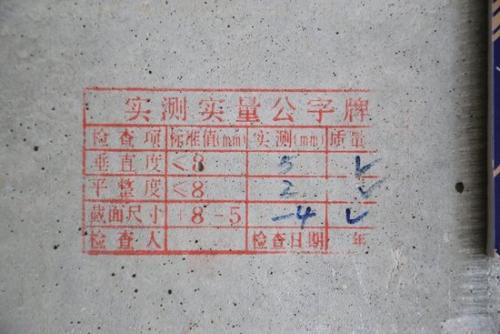 实测实量公字牌
检查项 标准值(mm) 实测(mm) 质量
垂直度 <8 5 ✓
平整度 <8 2 ✓
截面尺寸 +8 -5 -4 ✓
检查人 检查日期 年